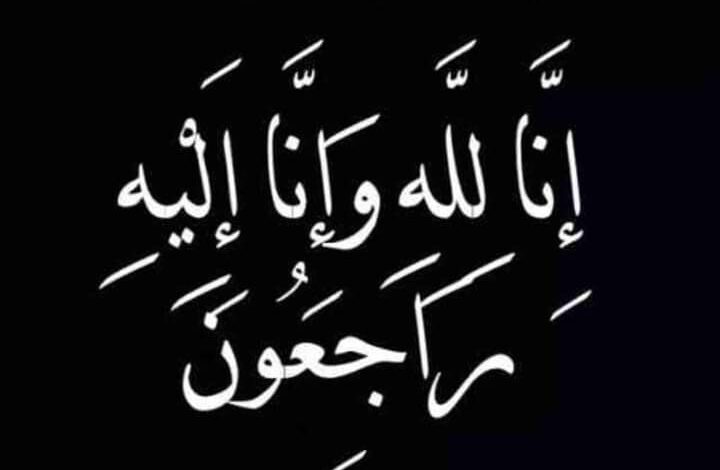 إِنَّا لِلَّهِ وَإِنَّا إِلَيْهِ
رَاَجِعُونَ